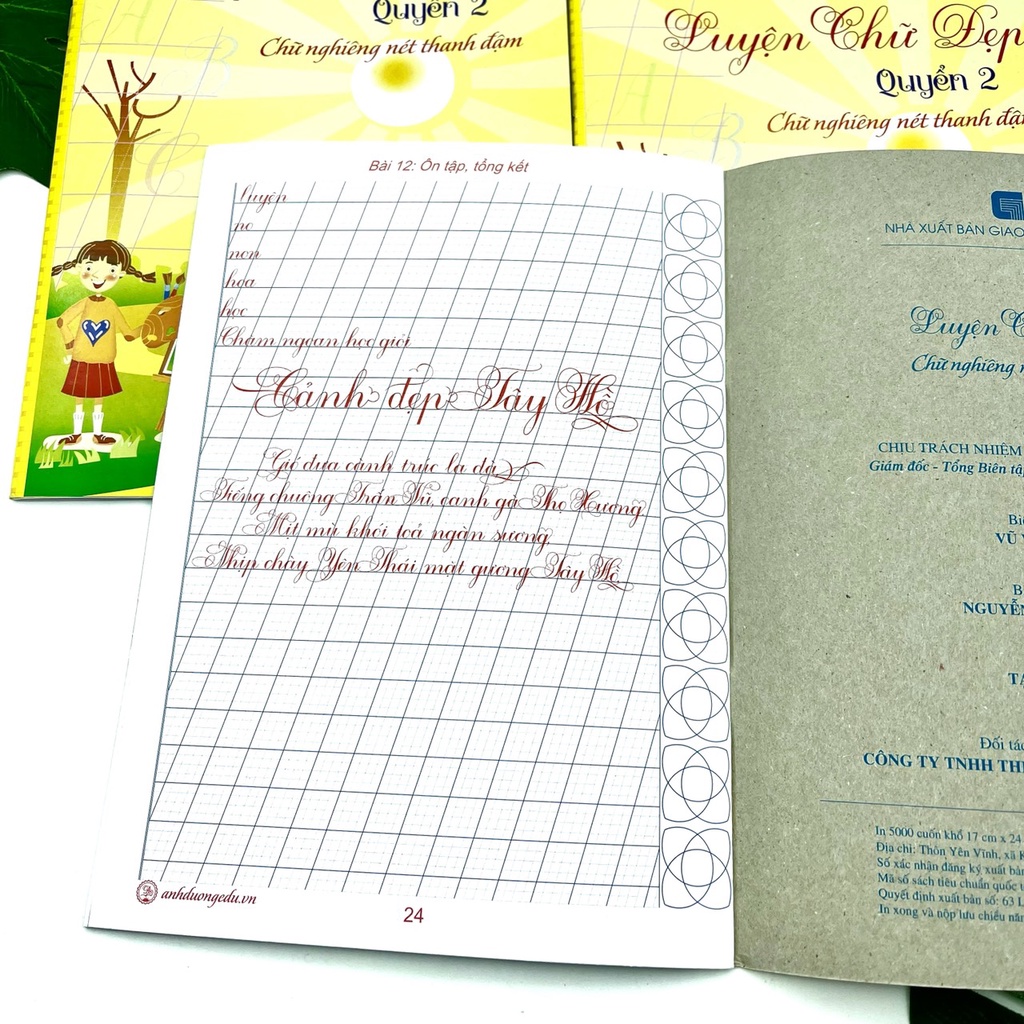 Quyển 2
Chữ nghiêng nét thanh đậm
Luyện Chữ Đẹp
Quyển 2
Chữ nghiêng nét thanh đậm
Bài 12: Ôn tập, tổng kết
luyện
no
non
hoa
học
Chăm ngoan học giỏi
Cảnh đẹp Tây Hồ
Gió đưa cành trúc la đà
Tiếng chuông Trấn Vũ, canh gà Thọ Xương
Mịt mù khói toả ngàn sương,
Nhịp chày Yên Thái mặt gương Tây Hồ.
anhduongedu.vn
24
NHÀ XUẤT BẢN GIAO
Luyện C
Chữ nghiêng n
CHỊU TRÁCH NHIỆM
Giám đốc - Tổng Biên tậ
Biê
VŨ
B
NGUYỄN
TẠ
Đối tác
CÔNG TY TNHH TH
In 5000 cuốn khổ 17 cm x 24
Địa chỉ: Thôn Yên Vĩnh, xã K
Số xác nhận đăng ký xuất bản
Mã số sách tiêu chuẩn quốc t
Quyết định xuất bản số: 63 L
In xong và nộp lưu chiểu năm